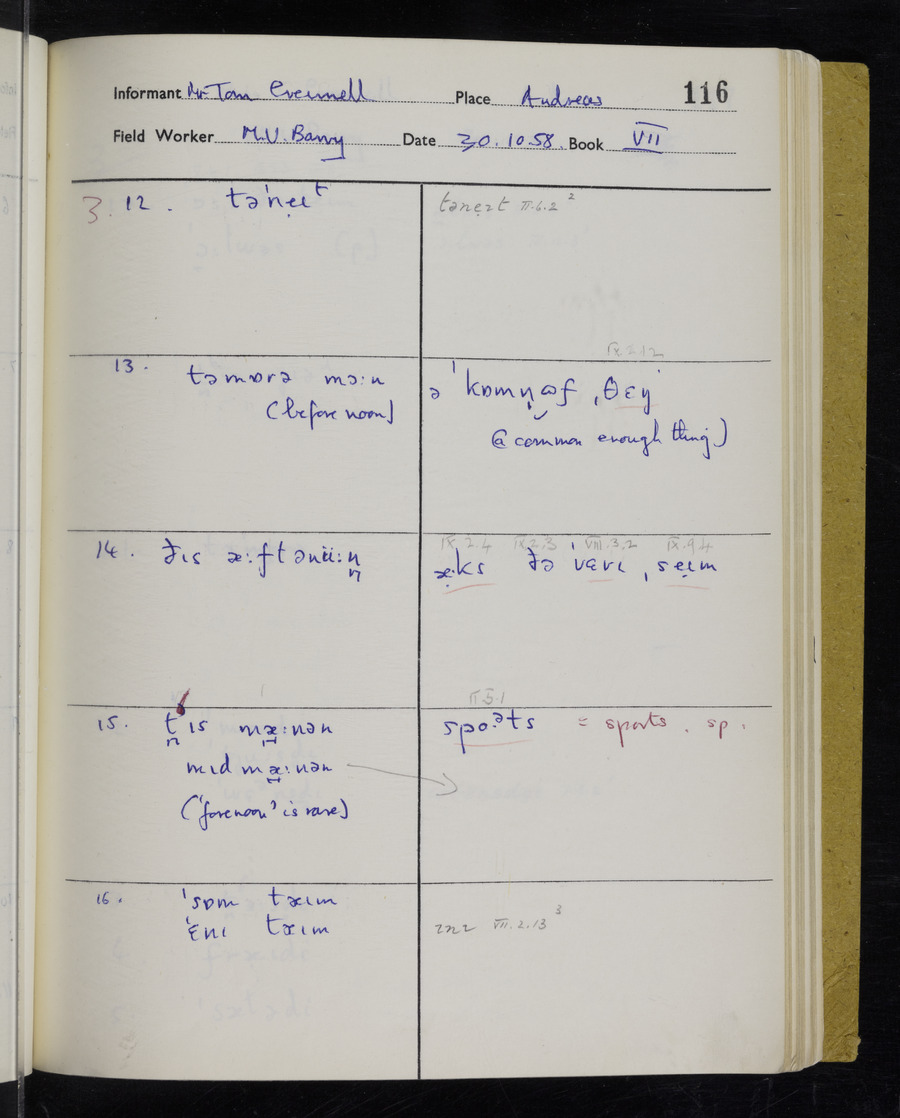 Informant Mr. Tom Place Andreas 116
Field Worker M.V. Barry Date 30.10.58. Book VII
3.12. tə'nẹɪt
tənẹɪt II.6.2²
13. təmɒrə mɔ:n
(before noon)
IX.2.12
ə 'kɒmn̩ ɷf ˌθɛŋ
(a common enough thing)
14. ðɪs æ:ftənü:n
IX.2.4 IX.2.3 VIII.3.2 IX.9.4
æ̣ks ðə 'vɛrɪ ˌsẹɪm
15. t ɪs mæ:nən
mɪd mæ:nən
('forenoon' is rare)
II.5.1
spo.ᵊts = sports. sp.
16. 'sɒm tæɪm
'ɛnɪ tæɪm
ɛnɪ VII.2.13³